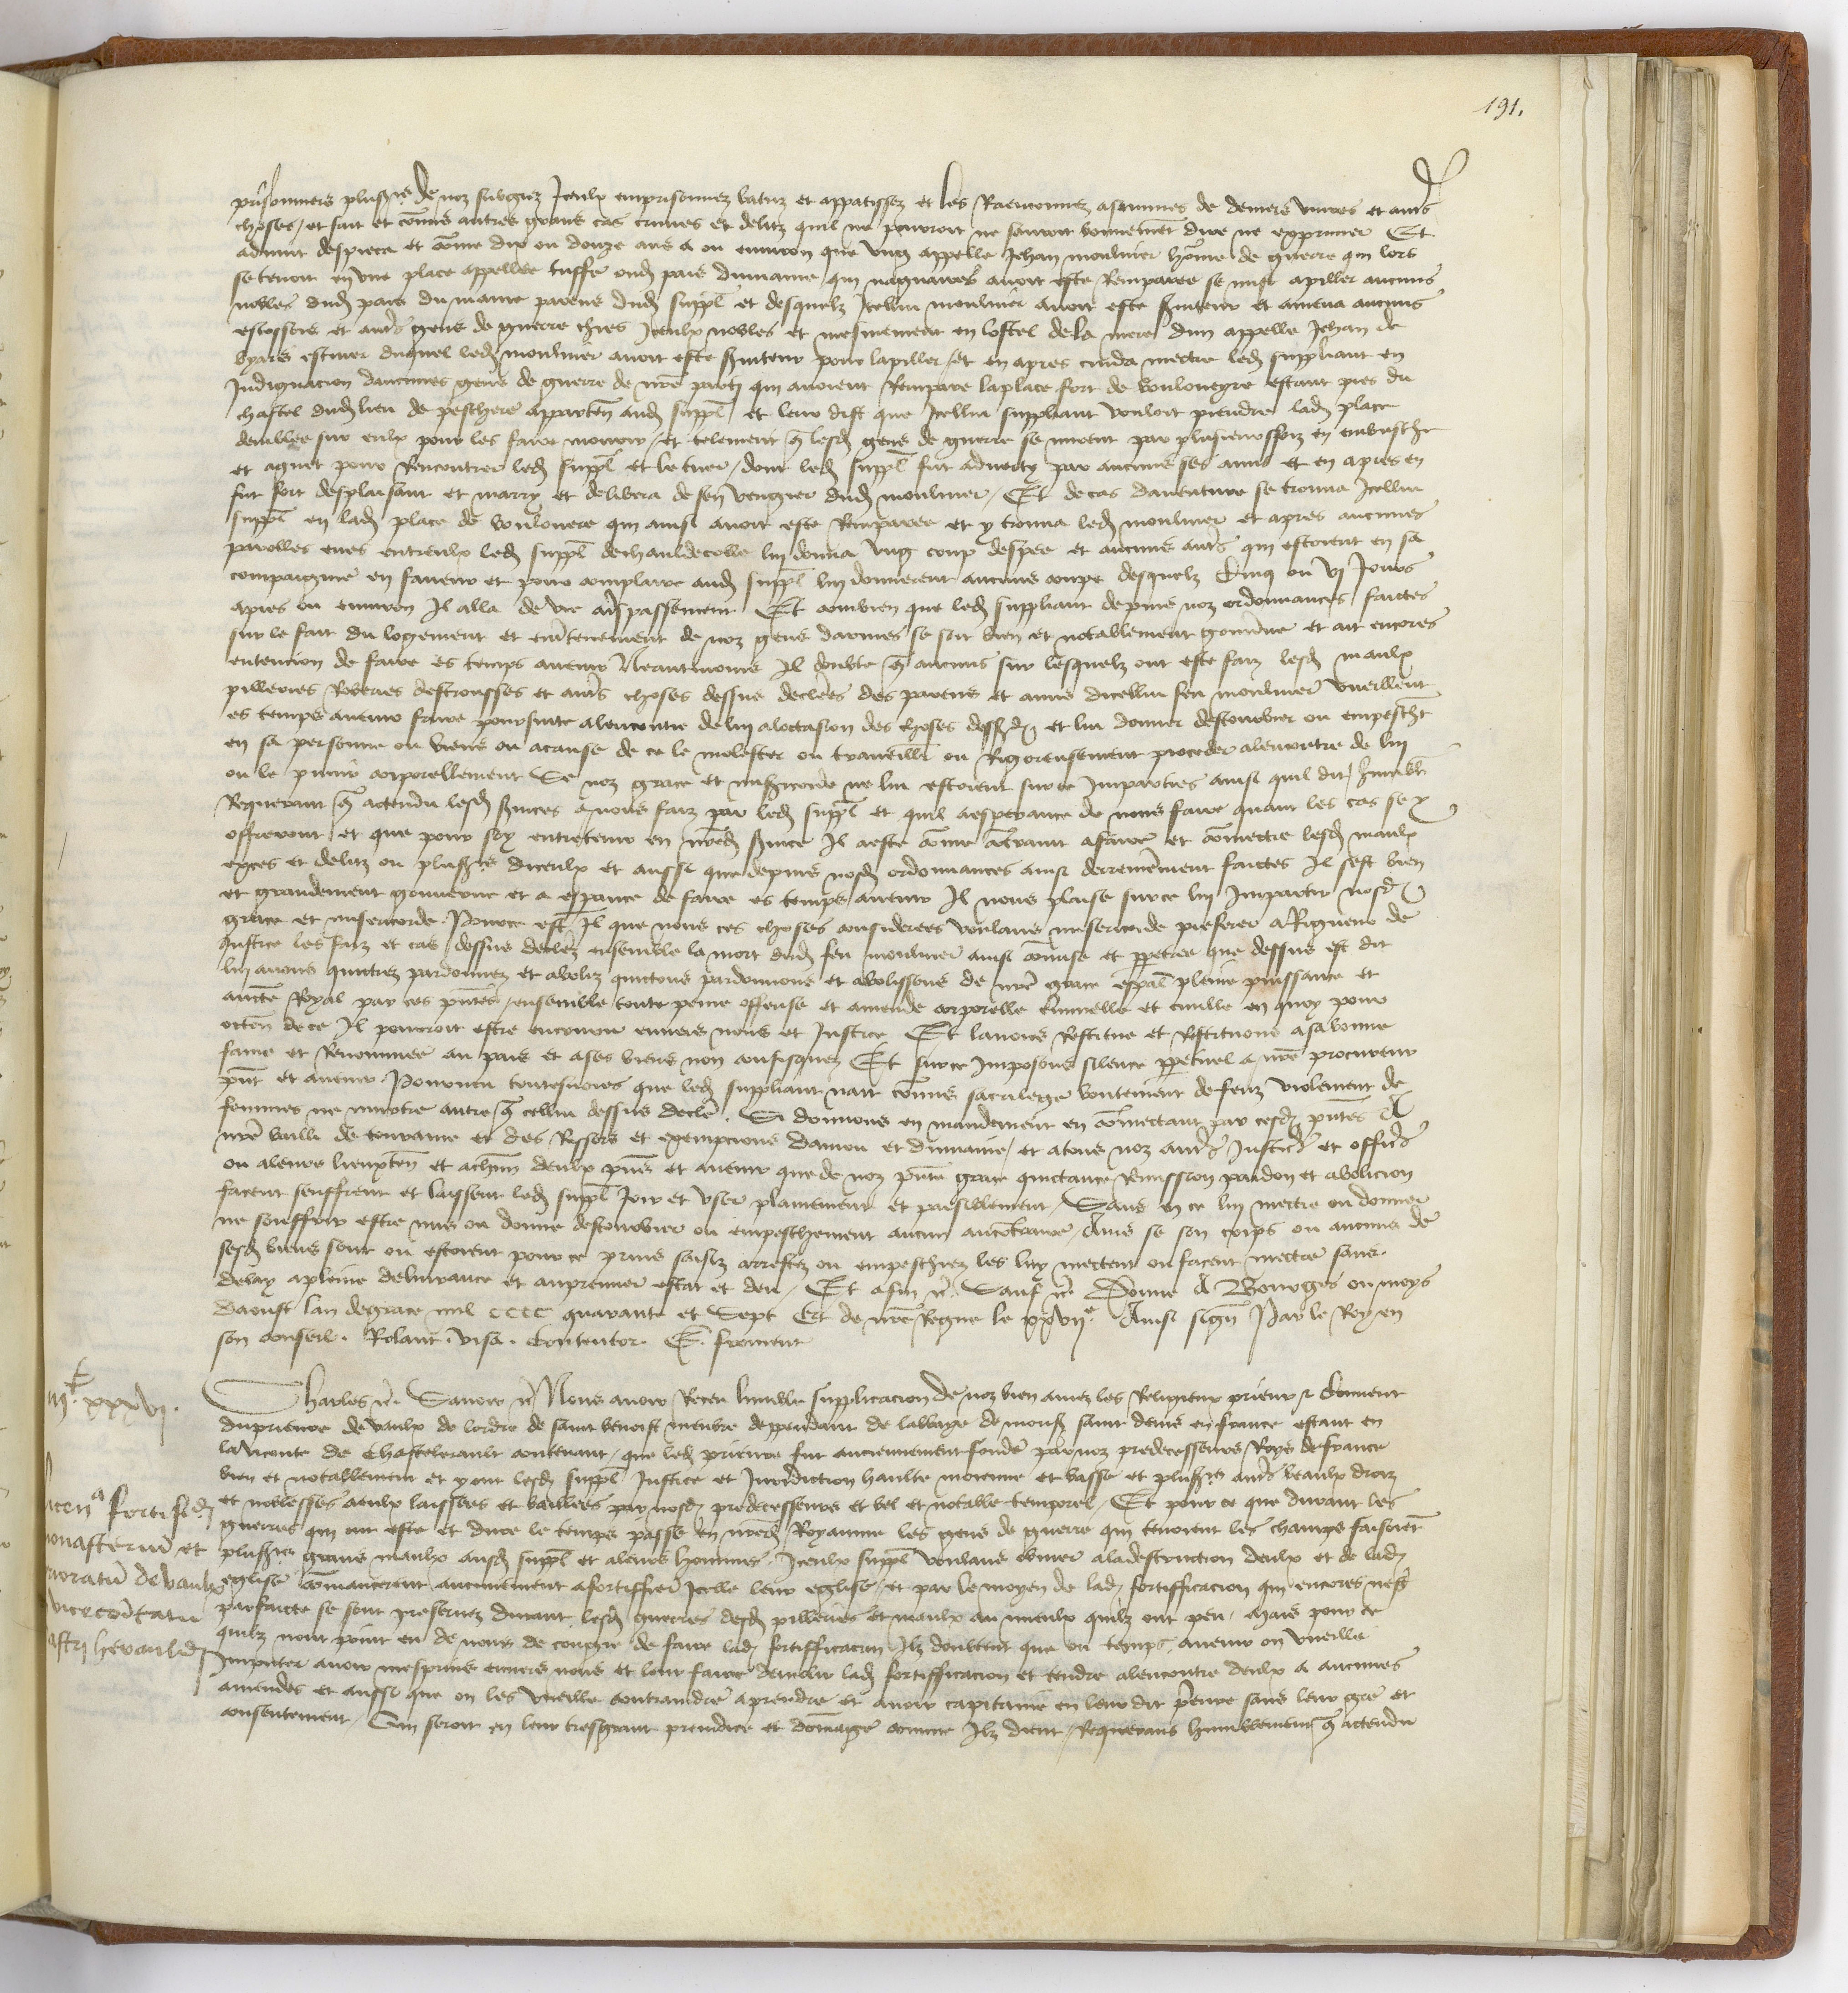 191.
prisonniers plus.rs de noz subgiez Iceulx emprisonnez batuz et appatissez et les Raenconnez a sommes de deniers vivres et autrs
choses / et fait et commis autres grans cas crimes et delitz quil ne pourroit ne sauroit bonnement dire ne exprimer Et
advint despiece et comme dix ou douze ans a ou environ que ung appelle Jehan moulinier homme de guerre qui lors
se tenoit en une place appellee tuffe oud. pais du maine / qui nagueres avoit este Remparee se mist a piller aucuns
nobles dud. pais du maine parens dud. suppl. et desquelz Icellui moulinier avoit este serviteur et amena aucuns
escossois et autrs gens de guerre ches Iceulx nobles et mesmement en lostel de la mere dun appelle Jehan de
byars escuier duquel led. moulinier avoit este serviteur pour la piller / et en apres cuida mectre led. suppliant en
Indignacion daucunes gens de guerre de nre party qui avoient Rempare la place fort de estant pres du
chastel dud. lieu de peschere apparten. aud. suppl. et leur dist que Icellui suppliant vouloit prendre lad. place
demblee sur eulx pour les faire mourir / et telement q lesd. gens de guerre se mirent par plusieurs foiz en embusche
et aguet pour Rencontrer led. suppl. et le tuer / dont led. suppl. fut adverty par aucuns ses amis et en apres en
fut fort desplaisant et marry et delibera de sen vengier dud. moulinier / Et de cas daventure se trouva Icellui
suppl. en lad. place de qui ainsi avoit este Remparee et y trouva led. moulinier et apres aucunes
parolles eues entreulx led. suppl. de chauldecolle lui donna ung coup despee et aucuns autrs qui estoient en sa
compaignie en faveur et pour complaire aud. suppl. lui donnerent aucuns coups desquelz Cinq ou vj Jours
apres ou environ Il alla de vie a trspassement Et combien que led. suppliant depuis noz ordonnances faictes
sur le fait du logement et entretenement de noz gens darmes se soit bien et notablement gouverne et ait encores
entencion de faire es temps avenir Neantmoins Il doubte q aucuns sur lesquelz ont este faiz lesd. maulx
pilleries Roberies destrousses et autrs choses dessus declrees des parens et amis dicellui feu moulinier vueillent
es temps avenir faire poursuite alencontre de lui a loccasion des choses dessusd. et lui donner destourbier ou empescht
en sa personne ou biens ou a cause de ce le molester ou traveillr ou Rigoreusement proceder alencontre de lui
ou le punir corporellement Se noz grace et misericorde ne lui estoient sur ce Imparties ainsi quil dit / humblt
Requerant q actendu lesd. services a nous faiz par led. suppl. et quil a esperance de nous faire quant les cas se y
offreront et que pour soy entretenir en nred. service Il a este comme contraint a faire et commectre lesd. maulx
exces et delitz ou plus.rs diceulx et aussi que depuis nosd. ordonnances ainsi derrenierement faictes Il sest bien
et grandement gouverne et a esperance de faire es temps avenir Il nous plaise sur ce lui Impartir nosd.
grace et misericorde. Pource est Il que nous ces choses considerees voulans misericorde preferer a Rigueur de
Justice les faiz et cas dessus declrez ensemble la mort dud. feu moulinier ainsi commise et perpetree que dessus est dit
lui avons quictez pardonnez et aboliz quictons pardonnons et abolissons de nre grace espal pleine puissance et
aucte Royal par ces pntes / ensemble toute peine offense et amende corporelle criminelle et civille en quoy pour
occon de ce Il pourroit estre encouru envers nous et Justice Et lavons Restitue et Restituons a sa bonne
fame et Renommee au pais et a ses biens non confisquez Et sur ce Imposons silence perpetuel a nre procureur
pnt et avenir. Pourveu toutesvoies que led. suppliant nait commis sacrilege boutement de feuz violement de
femmes ne murtre autre q cellui dessus declre. Si donnons en mandement en commectant par cesd. pntes A
nre bailli de touraine et des Ressors et exempcions danjou et du maine / et a tous noz autrs Justicrs et officrs
ou a leurs lieuxten et a chun deulx pns et avenir que de noz pnte grace quictance Remission pardon et abolicion
facent seuffrent et laissent led. suppl. Joir et user plainement et paisiblement / Sans en ce lui mectre ou donner
ne souffrir estre mis ou donne destourbier ou empeschement aucun au contraire / Ains se son corps ou aucuns de
sesd. biens sont ou estoient pour ce prins saisiz arrestez ou empeschez les luy mectent ou facent mectre sans
delay a pleine delivrance et au premier estat et deu / Et afin &c. Sauf &c. Donne A Bourges ou moys
daoust lan de grace mil CCCC quarante et Sept Et de nre Regne le xxvije Ainsi signe Par le Roy en
son conseil. Rolant. visa. Contentor. E. froment
iijc. xxxvj.
Charles &c. Savoir &c. Nous avoir Receu lumble supplicacion de noz bien amez les Religieux prieur & Couvent
du prieure de vaulx de lordre de saint benoist membre deppendant de labbaye de mons. saint denis en france estant en
la viconte de Chastelerault contenant / que led. prieure fut anciennement fonde par noz predecesseurs Roys de france
bien et notablement et y ont lesd. suppl. Justice et Juridiction haulte moienne et basse et plus.rs autrs beaulx droiz
et noblesses a eulx laissees et baillees par nosd. predecesseurs et bel et notable temporel / Et pour ce que durant les
guerres qui ont este et dure le temps passe en nred. Royaume les gens de guerre qui tenoient les champs faisoient
plus.rs grans maulx ausd. suppl. et a leurs hommes. Iceulx suppl. voulans obvier a la destruction deulx et de lad.
eglise commancerent anciennement a fortiffier Icelle leur eglise / et par le moyen de lad. fortifficacion qui encores nest
parfaicte se sont preservez durant lesd. guerres desd. pilleries et maulx au mieulx quilz ont peu / Mais pour ce
quilz nont point eu de nous de congie de faire lad. fortifficacion Ilz doubtent que ou temps avenir on vueille
Imputer avoir mesprins envers nous et leur faire demolir lad. fortifficacion et tendre alencontre deulx a aucunes
amendes et aussi que on les vueille contraindre a prendre et avoir capitaine en leur dit prieure sans leur gre et
consentement / Qui seroit en leur tresgrant prejudice et dommage comme Ilz dient / Requerans humblement q actendu
fortifcd.
onasterium et
oratu de vaulx
vicecomitatu
astri heraudi